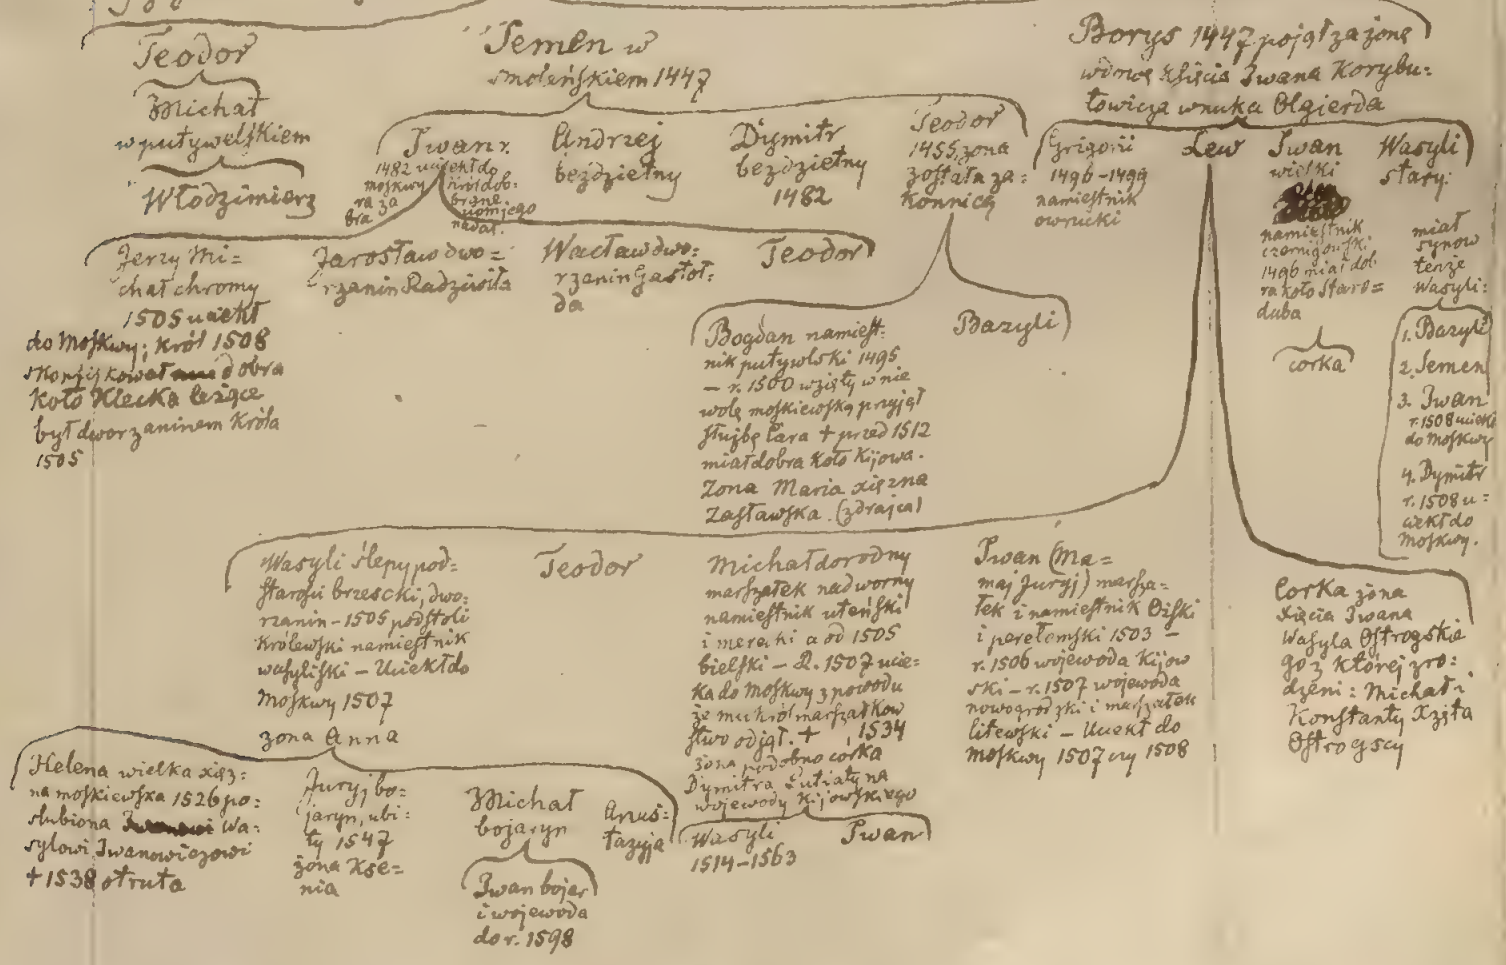 Teodor
Michał
w putywelskiem
Włodzimierz
Semen w
smoleńskiem 1447
Borys 1447 pojął za żonę
wdowę księcia Iwana Korybu=
towicza wnuka Olgierda
Iwan r.
1482 uciekł do
moskwy
król dob=
ra za
brane
nadał.
Andrzej
bezdzietny
Dymitr
bezdzietny
1482
Teodor
1455, żona
została za=
konnicą
Grigorii
1496-1499
namiestnik
owrucki
Lew
Iwan
wielki
namiestnik
czernigowski
1496 miał dob
ra koło Staro=
duba
corka
Wasyli
stary:
miał
synow
tenże
Wasyli:
1. Bazyli
2. Semen
3. Iwan
r. 1508 uciekł
do Moskwy
4. Dymitr
r. 1508 u=
ciekł do
Moskwy.
Jerzy Mi=
chał chromy
1505 uciekł
do Moskwy; Król 1508
skonfiskował dobra
Koło Klecka leżące
był dworzaninem Króla
1505
Jarosław dwo=
rzanin Radziwiła
Wacław dwo=
rzanin Gastoł=
da
Teodor
Bogdan namiest=
nik putywlski 1495
– r. 1500 wzięty w nie
wolę moskiewską przyjął
służbę Cara + przed 1512
miał dobra koło Kijowa.
Zona Maria xiężna
Zasławska. (zdrajca)
Bazyli
Wasyli ślepy pod=
starości brzescki, dwo=
rzanin – 1505 podstoli
Królewski namiestnik
wasyliski – Uciekł do
Moskwy 1507
zona Anna
Teodor
Michał dorodny
marszałek nadworny
namiestnik uteński
i merecki a od 1505
bielski – R. 1507 ucie=
ka do Moskwy z powodu
że mu król marszałkow
stwo odjął. + 1534
żona podobno córka
Dymitra Putiatyna
wojewody Kijowskiego
Iwan (Ma=
maj Juryj) marsza=
łek i namiestnik Ożski
i perełomski 1503 –
r. 1506 wojewoda Kijow
ski – r. 1507 wojewoda
nowogrodzki i marszałek
litewski – Uciekł do
Moskwy 1507 czy 1508
Corka żona
Xięcia Iwana
Wasyla Ostrogskie
go z której zro=
dzeni: Michał i
Konstanty Xżęta
Ostrogscy
Helena wielka xięż=
na moskiewska 1526 po=
slubiona Wa=
sylowi Iwanowiczowi
+ 1538 otruta
Juryj bo=
jaryn, ubi=
ty 1547
żona Kse=
nia
Michał
bojaryn
Iwan bojar
i wojewoda
do r. 1598
Anas=
tazyja
Wasyli
1514–1563
Iwan